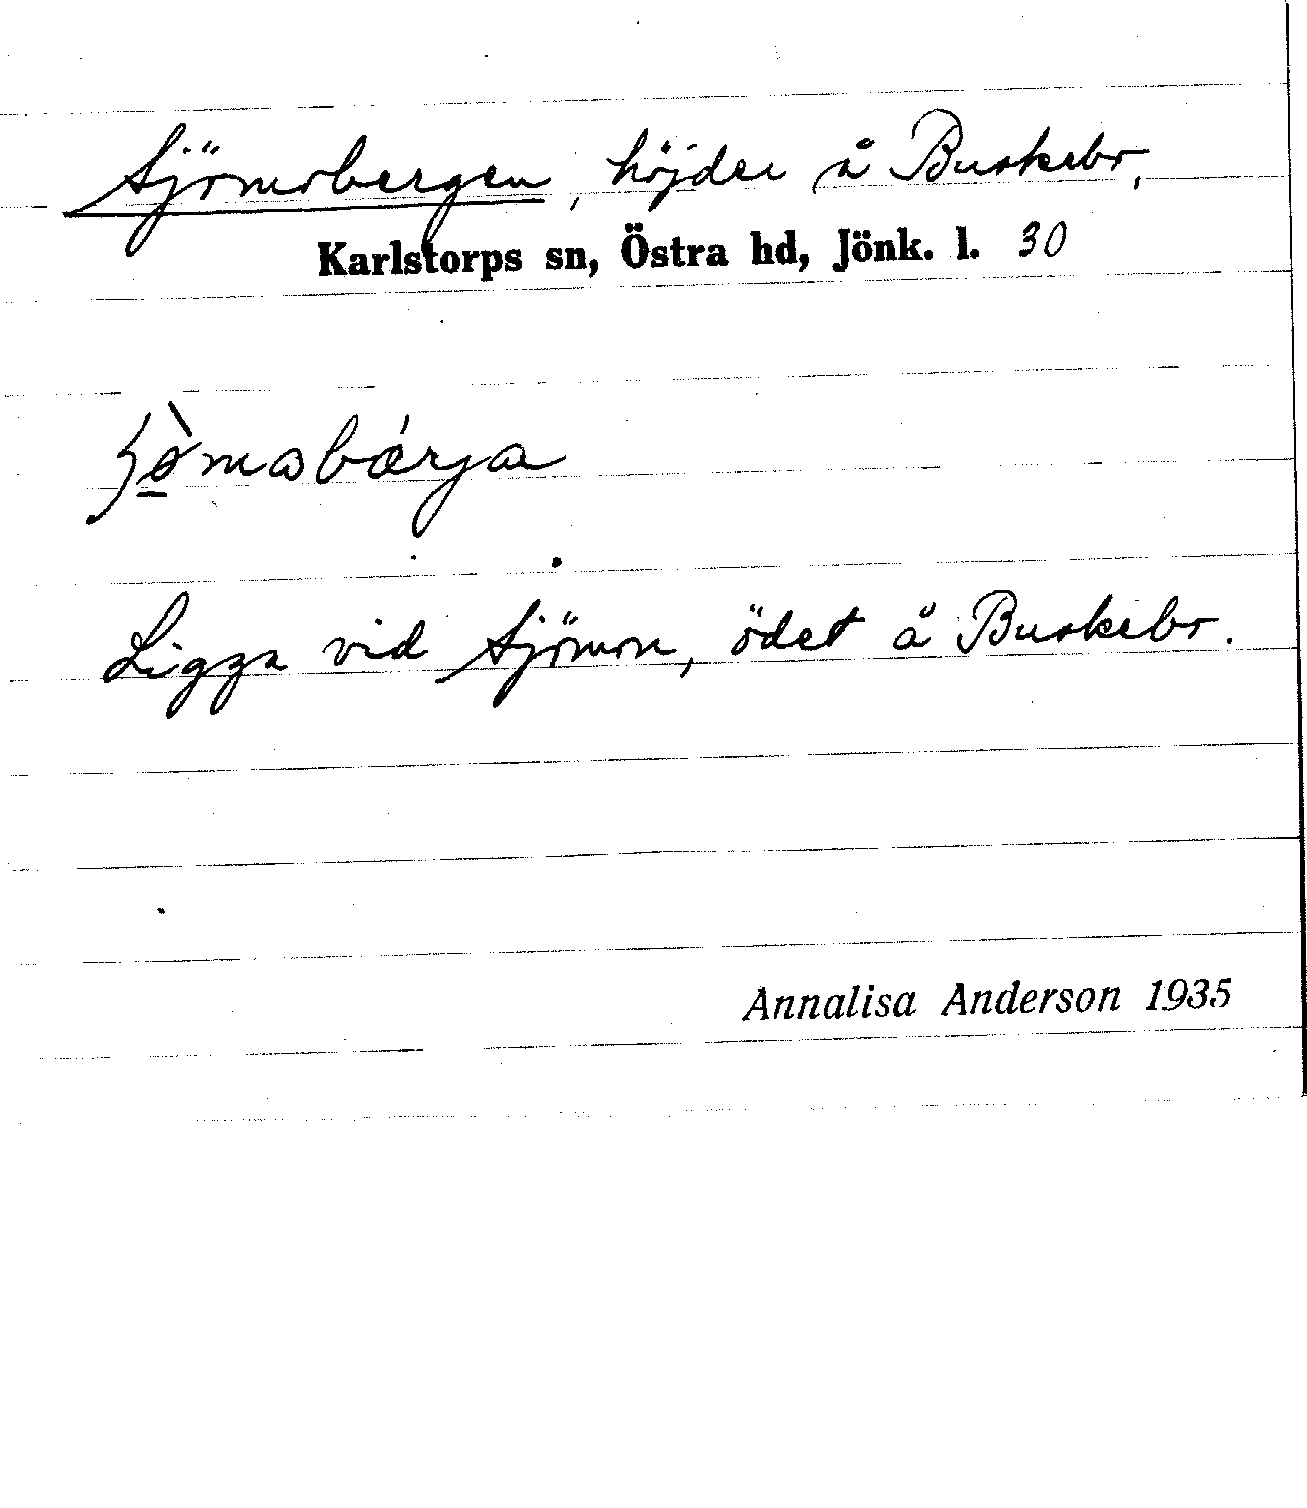 Sjömobergen, höjder å Buskebo,
Karlstorps sn, Östra hd, Jönk. l. 30
Ligga vid Sjömon, ödet å Buskebo.
Annalisa Anderson 1935